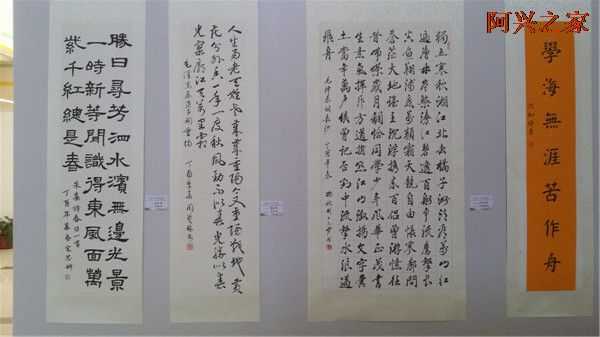 阿兴之家
學海無涯苦作舟
獨立寒秋湘江北去橘子洲頭看萬山紅
遍層林盡染漫江碧透百舸爭流鷹擊長
空魚翔淺底萬類霜天競自由悵寥廓問
蒼茫大地誰主沉浮攜來百侶曾遊憶往
昔崢嶸歲月稠恰同學少年風華正茂書
生意氣揮斥方遒指點江山激揚文字糞
土當年萬戶侯曾記否到中流擊水浪遏
飛舟
人生易老天難老歲歲重陽今又重陽戰地黃
花分外香一年一度秋風勁不似春光勝似春
光寥廓江天萬里霜
勝日尋芳泗水濱無邊光景
一時新等閒識得東風面萬
紫千紅總是春
朱熹詩春日一首